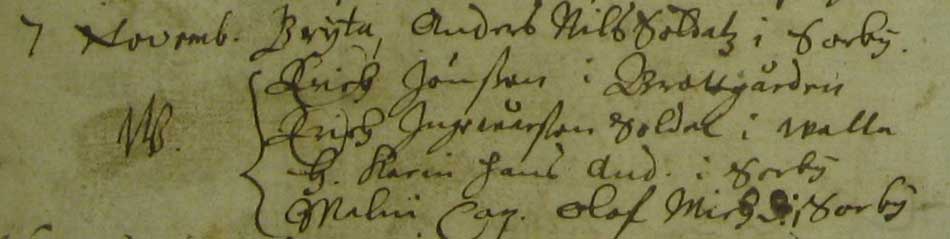 7 Novemb. Bryta, Anders Nils Soldatz i Sörby.
Erich Jönsson i Brattgården
W. Erich Ingevarsson Soldat i walla
H. Karin Hans And. i Sörby
Malin Olof Mich i Sörby